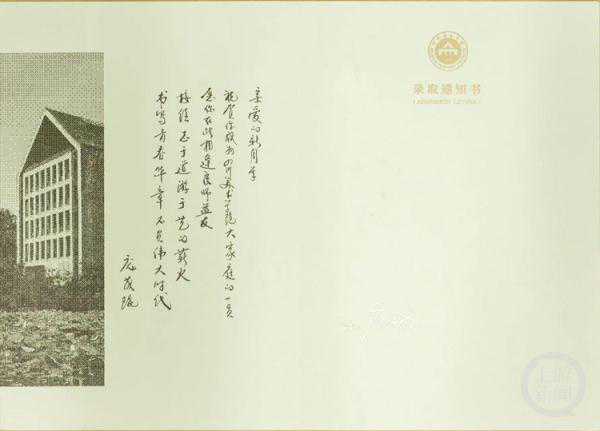 录取通知书
ADMISSION LETTER
亲爱的新同学
祝贺你成为四川美术学院大家庭的一员
愿你在此相逢良师益友
接续志于道游于艺的薪火
书写青春华章 不负伟大时代
庞茂琨
上游新闻